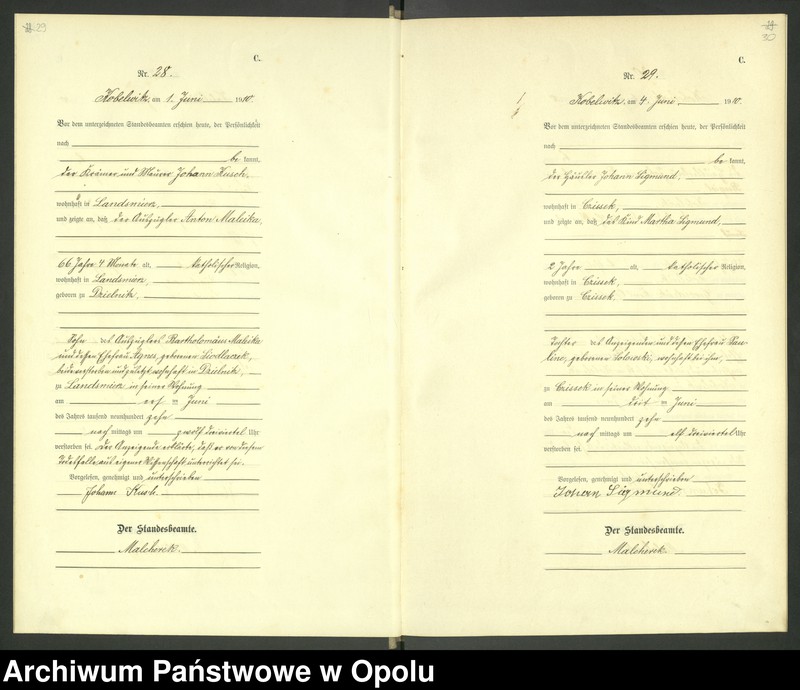 29
C.
Nr. 28.
Kobelwitz, am 1. Juni 1910.
Vor dem unterzeichneten Standesbeamten erschien heute, der Persönlichkeit
nach
be kannt,
der Krämer und Maurer Johann Kusch,
wohnhaft in Landsmierz,
und zeigte an, daß der Auszügler Anton Maleika,
66 Jahre 4 Monate alt, katholischer Religion,
wohnhaft in Landsmierz,
geboren zu Dzielnitz,
Sohn des Auszüglers Bartholomäus Maleika
und dessen Ehefrau Agnes, geborenen
beide verstorben und zuletzt wohnhaft in Dzielnitz,
zu Landsmierz in seiner Wohnung
am ersten Juni
des Jahres tausend neunhundert zehn
nach mittags um zwölf dreiviertel Uhr
verstorben sei. Der Anzeigende erklärte, daß er von diesem
Todesfalle aus eigener Wissenschaft unterrichtet sei.
Vorgelesen, genehmigt und unterschrieben
Johann Kusch.
Der Standesbeamte.
Malcherek.
30
C.
Nr. 29.
Kobelwitz, am 4. Juni 1910.
Vor dem unterzeichneten Standesbeamten erschien heute, der Persönlichkeit
nach
be kannt,
der Häusler Johann Sigmund,
wohnhaft in Czissek,
und zeigte an, daß das Kind Martha Sigmund,
2 Jahre alt, katholischer Religion,
wohnhaft in Czissek,
geboren zu Czissek,
Tochter des Anzeigenden und dessen Ehefrau Pau-
line, geborenen wohnhaft bei ihm,
zu Czissek in seiner Wohnung
am Juni
des Jahres tausend neunhundert zehn
nach mittags um elf dreiviertel Uhr
verstorben sei.
Vorgelesen, genehmigt und unterschrieben
Johan Sigmund.
Der Standesbeamte.
Malcherek.
Archiwum Państwowe w Opolu